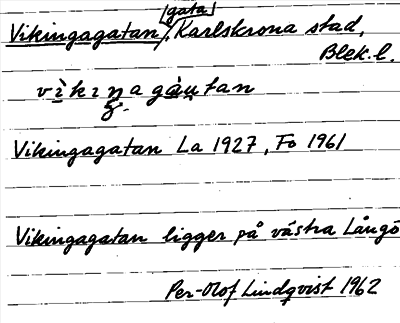 gata
Vikingagatan, Karlskrona stad,
Blek.l.
Vikingagatan La 1927, Fo 1961
Vikingagatan ligger på västra Långö
Per-Olof Lindqvist 1962